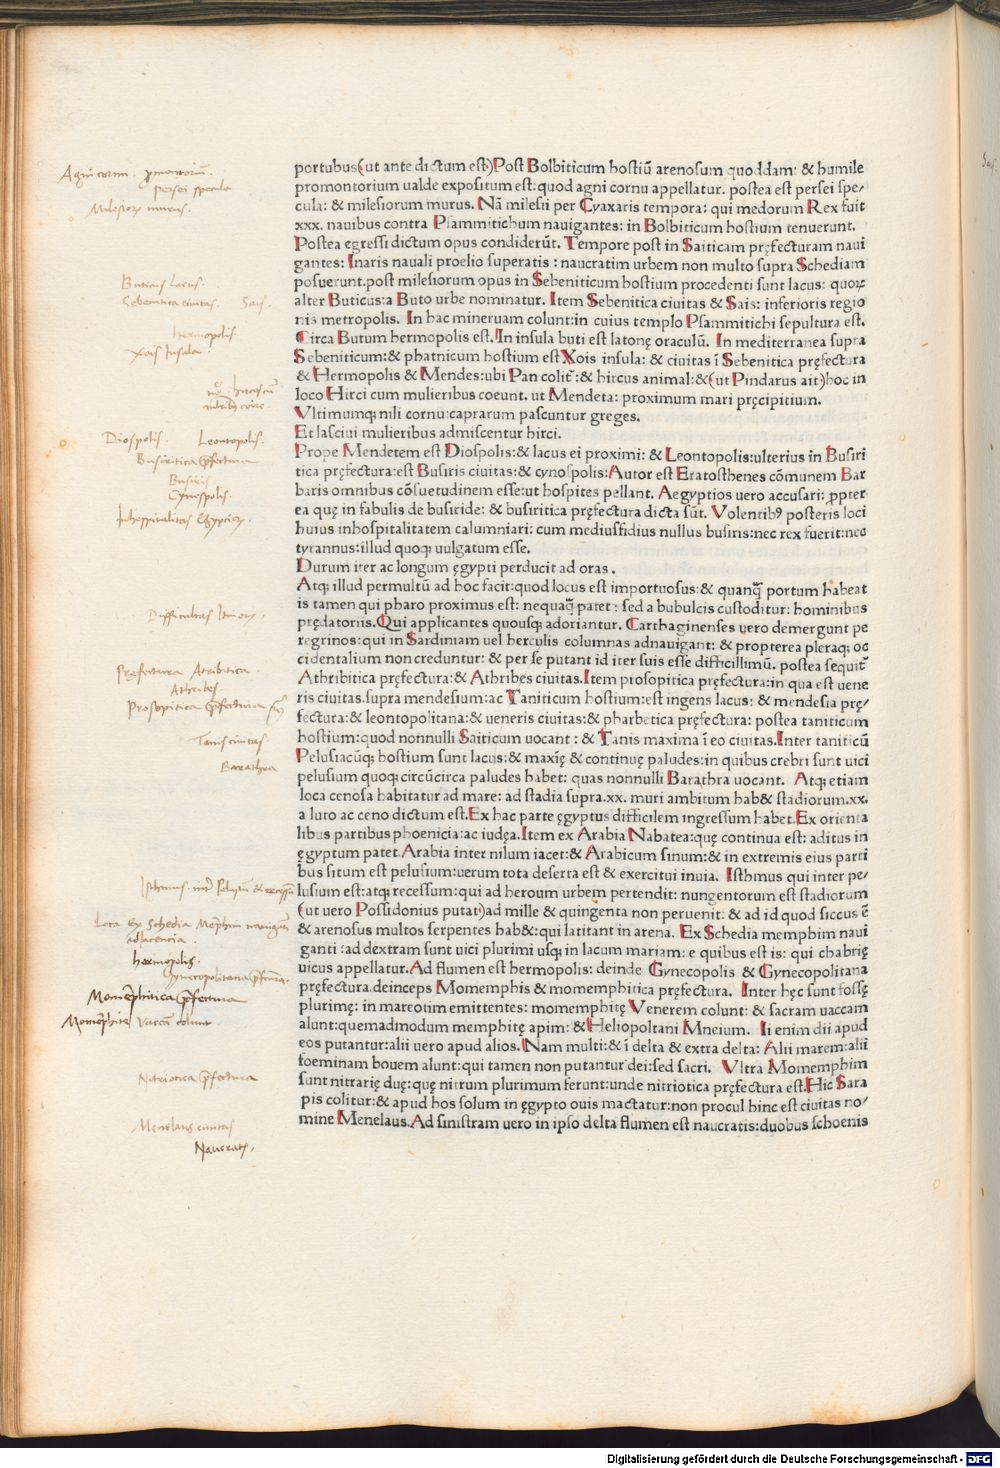 portubus(ut ante dictum est)Post Bolbiticum hostiũ arenosum quoddam: & humile
promontorium ualde expositum est: quod agni cornu appellatur. postea est persei spe⸗
cula: & milesiorum murus. Nã milesii per Cyaxaris tempora: qui medorum Rex fuit
xxx. nauibus contra Psammitichum nauigantes: in Bolbiticum hostium tenuerunt.
Postea egressi dictum opus condiderũt. Tempore post in Saiticam pręfecturam naui
gantes: Inaris nauali proelio superatis: naucratim urbem non multo supra Schediam
posuerunt. post milesiorum opus in Sebeniticum hostium procedenti sunt lacus: quoꝝ
alter Buticus: a Buto urbe nominatur. Item Sebenitica ciuitas & Sais: inferioris regio
nis metropolis. In hac mineruam colunt: in cuius templo Psammitichi sepultura est.
Circa Butum hermopolis est. In insula buti est latonę oraculũ. In mediterranea supra
Sebeniticum: & phatnicum hostium est Xois insula: & ciuitas ĩ Sebenitica pręfectura
& Hermopolis & Mendes: ubi Pan colit̃: & hircus animal: &(ut Pindarus ait)hoc in
loco Hirci cum mulieribus coeunt. ut Mendeta: proximum mari pręcipitium.
Vltimumqꝫ nili cornu: caprarum pascuntur greges.
Et lasciui mulieribus admiscentur hirci.
Prope Mendetem est Diospolis: & lacus ei proximi: & Leontopolis: ulterius in Busiri
tica pręfectura: est Busiris ciuitas: & cynospolis: Autor est Eratosthenes cõmunem Bar
baris omnibus cõsuetudinem esse: ut hospites pellant. Aegyptios uero accusari: ꝓpter
ea quę in fabulis de busiride: & busiritica pręfectura dicta sũt. Volentibꝰ posteris loci
huius inhospitalitatem calumniari: cum mediusfidius nullus busiris: nec rex fuerit: nec
tyrannus: illud quoqꝫ uulgatum esse.
Durum iter ac longum ęgypti perducit ad oras.
Atqꝫ illud permultũ ad hoc facit: quod locus est importuosus: & quanꝗ̃ portum habeat
is tamen qui pharo proximus est: nequaꝗ̃ patet: sed a bubulcis custoditur: hominibus
prędatoriis. Qui applicantes quousqꝫ adoriantur. Carthaginenses uero demergunt pe
regrinos: qui in Sardiniam uel herculis columnas adnauigant: & propterea pleraqꝫ oc
cidentalium non creduntur: & per se putant id iter suis esse difficillimũ. postea sequit̃
Athribitica pręfectura: & Athribes ciuitas. Item prosopitica pręfectura: in qua est uene
ris ciuitas. supra mendesium: ac Taniticum hostium: est ingens lacus: & mendesia prę⸗
fectura: & leontopolitana: & ueneris ciuitas: & pharbetica pręfectura: postea taniticum
hostium: quod nonnulli Saiticum uocant: & Tanis maxima ĩ eo ciuitas. Inter taniticũ
Pelusiacũqꝫ hostium sunt lacus: & maxię & continuę paludes: in quibus crebri sunt uici
pelusium quoqꝫ circũcirca paludes habet: quas nonnulli Barathra uocant. Atqꝫ etiam
loca cenosa habitatur ad mare: ad stadia supra.xx. muri ambitum hab& stadiorum.xx.
a luto ac ceno dictum est. Ex hac parte ęgyptus difficilem ingressum habet. Ex orienta
libus partibus phoenicia: ac iudęa. Item ex Arabia Nabatea: quę continua est: aditus in
ęgyptum patet. Arabia inter nilum iacet: & Arabicum sinum: & in extremis eius parti
bus situm est pelusium: uerum tota deserta est & exercitui inuia. Isthmus qui inter pe⸗
lusium est: atqꝫ recessum: qui ad heroum urbem pertendit: nungentorum est stadiorum
(ut uero Possidonius putat)ad mille & quingenta non peruenit: & ad id quod siccus ẽ
& arenosus multos serpentes hab&: qui latitant in arena. Ex Schedia memphim naui
ganti: ad dextram sunt uici plurimi usqꝫ in lacum mariam: e quibus est is: qui chabrię
uicus appellatur. Ad flumen est hermopolis: deinde Gynecopolis & Gynecopolitana
pręfectura. deinceps Momemphis & momemphitica pręfectura. Inter hęc sunt fossę
plurimę: in mareotim emittentes: momemphitę Venerem colunt: & sacram uaccam
alunt: quemadmodum memphitę apim: & Heliopoltani Mneium. Ii enim dii apud
eos putantur: alii uero apud alios. Nam multi: & ĩ delta & extra delta: Alii marem: alii
foeminam bouem alunt: qui tamen non putantur dei: sed sacri. Vltra Momemphim
sunt nitrarię duę: quę nitrum plurimum ferunt: unde nitriotica pręfectura est. Hic Sara
pis colitur: & apud hos solum in ęgypto ouis mactatur: non procul hinc est ciuitas no⸗
mine Menelaus. Ad sinistram uero in ipso delta flumen est naucratis: duobus schoenis
Agni cornu. ꝓmontoriũ.
Persei specula
Milesioꝝ murus.
Buticus lacus.
Sebenitica ciuitas. Sais.
hermopolis.
Xois Insula.
Diospolis. Leontopolis.
Busiritica p̃fectura
Busiris
Cynospolis.
Inhospitalitas Egyptioꝝ.
Difficultas Itineris.
Pręfectura Atribitica.
Athribes
Prosopitica p̃fectura
Tanis ciuitas.
Barathra
Isthmus. int̃ Pelusiũ &
Loca Ex Schedia Mẽphim nauiganti
adiacencia.
hermopolis.
Gynecopolitana p̃fectura.
Momẽphitica p̃fectura
Momẽphite Vaccã colunt
Nitriotica p̃fectura
Menelaus ciuitas
Naucratis.
Digitalisierung gefördert durch die Deutsche Forschungsgemeinschaft - DFG